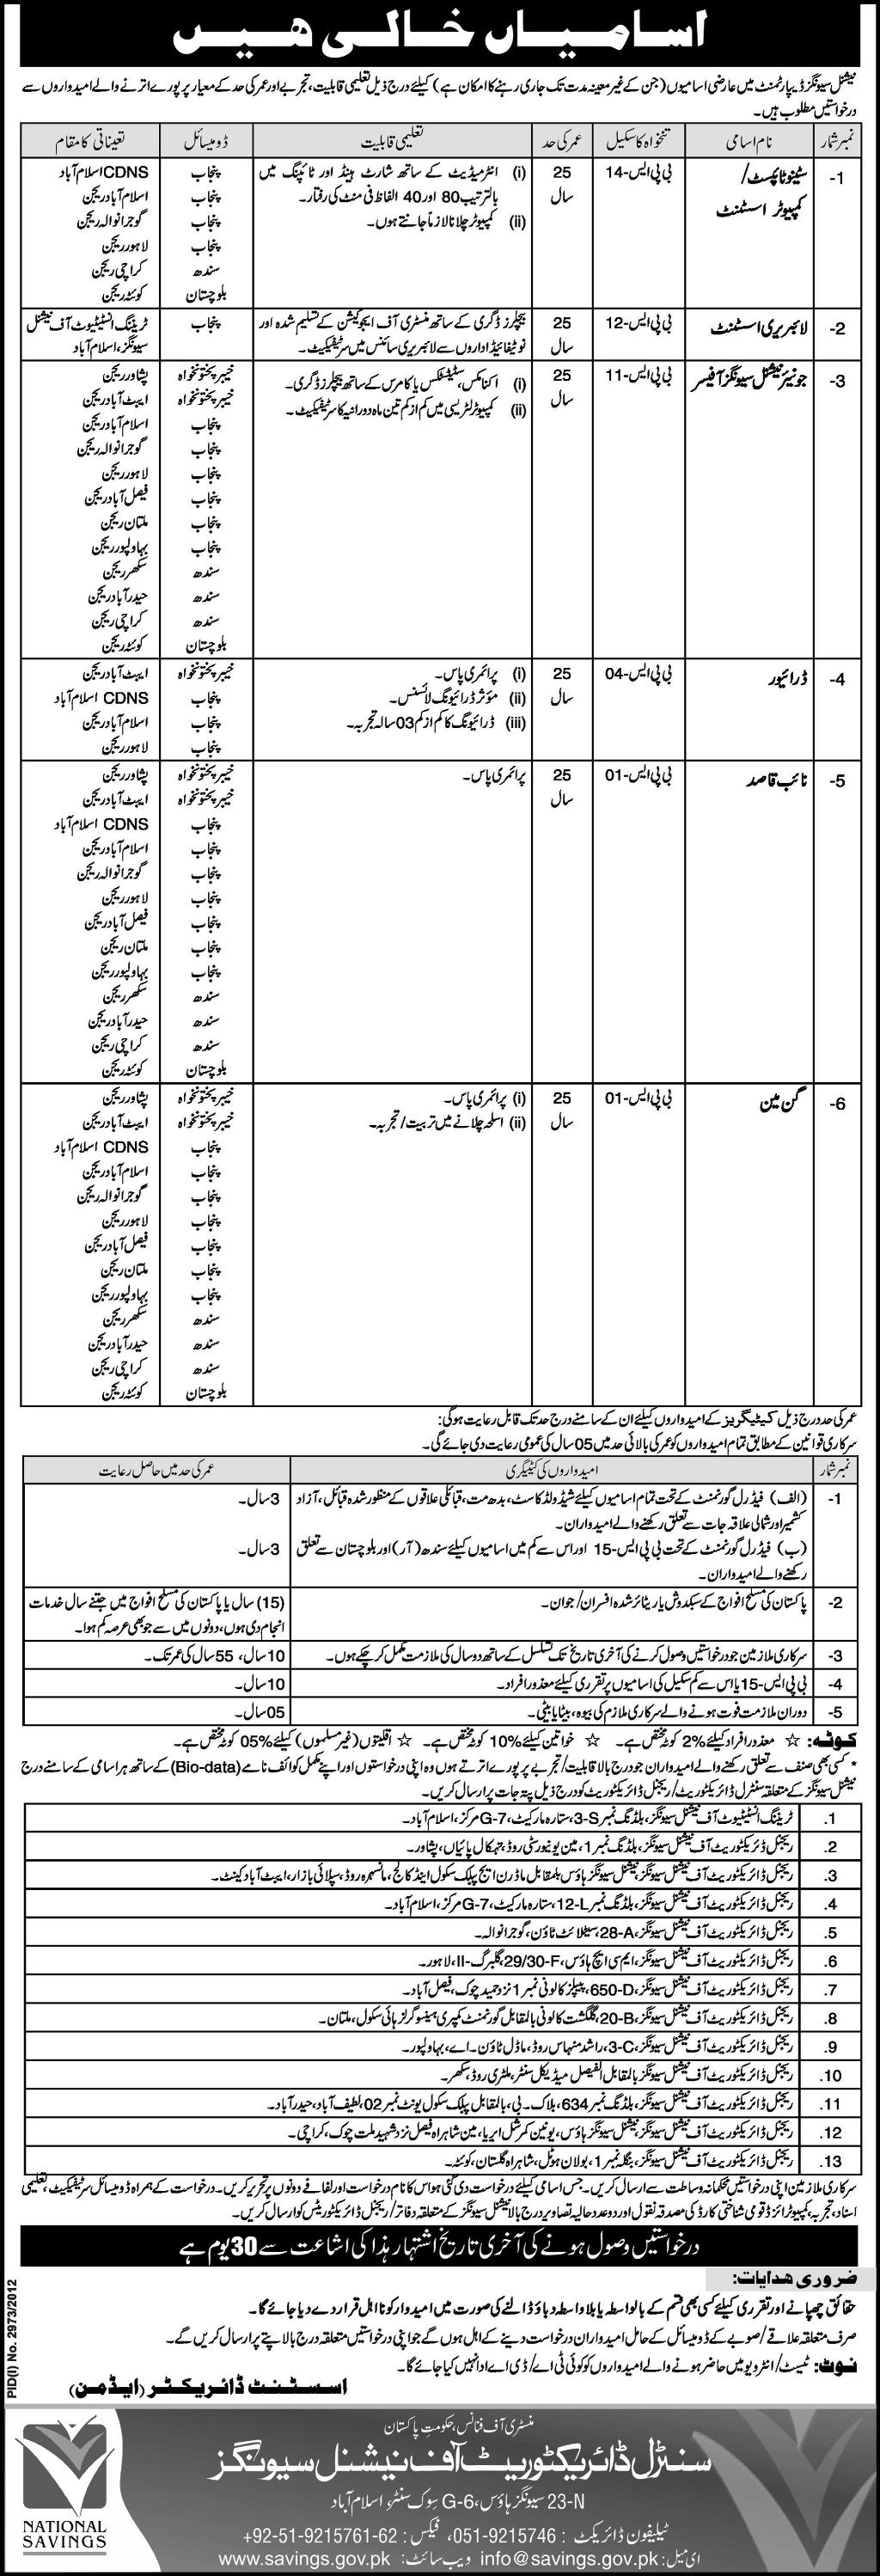 اسامیاں خالی ھیں
نیشنل سیونگز ڈیپارٹمنٹ میں عارضی اسامیوں (جن کے غیر معینہ مدت تک جاری رہنے کا امکان ہے) کیلئے درج ذیل تعلیمی قابلیت، تجربے اور عمر کی حد کے معیار پر پورے اترنے والے امیدواروں سے
درخواستیں مطلوب ہیں۔
نمبر شمار نام اسامی تنخواہ کا سکیل عمر کی حد تعلیمی قابلیت ڈومیسائل تعیناتی کا مقام
1- سٹینوٹائپسٹ/ بی پی ایس-14 25 (i) انٹرمیڈیٹ کے ساتھ شارٹ ہینڈ اور ٹائپنگ میں پنجاب CDNS اسلام آباد
کمپیوٹر اسسٹنٹ سال بالترتیب 80 اور 40 الفاظ فی منٹ کی رفتار۔ پنجاب اسلام آباد ریجن
(ii) کمپیوٹر چلانا لازماً جانتے ہوں۔ پنجاب گوجرانوالہ ریجن
پنجاب لاہور ریجن
سندھ کراچی ریجن
بلوچستان کوئٹہ ریجن
2- لائبریری اسسٹنٹ بی پی ایس-12 25 بیچلرز ڈگری کے ساتھ منسٹری آف ایجوکیشن کے تسلیم شدہ اور پنجاب ٹریننگ انسٹیٹیوٹ آف نیشنل
سال نوٹیفائیڈ اداروں سے لائبریری سائنس میں سرٹیفکیٹ۔ سیونگز، اسلام آباد
3- جونیئر نیشنل سیونگز آفیسر بی پی ایس-11 25 (i) اکنامکس، سٹیٹسٹکس یا کامرس کے ساتھ بیچلرز ڈگری۔ خیبر پختونخواہ پشاور ریجن
سال (ii) کمپیوٹر لٹریسی میں کم از کم تین ماہ دورانیہ کا سرٹیفکیٹ۔ خیبر پختونخواہ ایبٹ آباد ریجن
پنجاب اسلام آباد ریجن
پنجاب گوجرانوالہ ریجن
پنجاب لاہور ریجن
پنجاب فیصل آباد ریجن
پنجاب ملتان ریجن
پنجاب بہاولپور ریجن
سندھ سکھر ریجن
سندھ حیدرآباد ریجن
سندھ کراچی ریجن
بلوچستان کوئٹہ ریجن
4- ڈرائیور بی پی ایس-04 25 (i) پرائمری پاس۔ خیبر پختونخواہ ایبٹ آباد ریجن
سال (ii) مؤثر ڈرائیونگ لائسنس۔ پنجاب CDNS اسلام آباد
(iii) ڈرائیونگ کا کم از کم 03 سالہ تجربہ۔ پنجاب اسلام آباد ریجن
پنجاب لاہور ریجن
5- نائب قاصد بی پی ایس-01 25 پرائمری پاس۔ خیبر پختونخواہ پشاور ریجن
سال خیبر پختونخواہ ایبٹ آباد ریجن
پنجاب CDNS اسلام آباد
پنجاب اسلام آباد ریجن
پنجاب گوجرانوالہ ریجن
پنجاب لاہور ریجن
پنجاب فیصل آباد ریجن
پنجاب ملتان ریجن
پنجاب بہاولپور ریجن
سندھ سکھر ریجن
سندھ حیدرآباد ریجن
سندھ کراچی ریجن
بلوچستان کوئٹہ ریجن
6- گن مین بی پی ایس-01 25 (i) پرائمری پاس۔ خیبر پختونخواہ پشاور ریجن
سال (ii) اسلحہ چلانے میں تربیت/تجربہ۔ خیبر پختونخواہ ایبٹ آباد ریجن
پنجاب CDNS اسلام آباد
پنجاب اسلام آباد ریجن
پنجاب گوجرانوالہ ریجن
پنجاب لاہور ریجن
پنجاب فیصل آباد ریجن
پنجاب ملتان ریجن
پنجاب بہاولپور ریجن
سندھ سکھر ریجن
سندھ حیدرآباد ریجن
سندھ کراچی ریجن
بلوچستان کوئٹہ ریجن
عمر کی حد درج ذیل کیٹیگریز کے امیدواروں کیلئے ان کے سامنے درج حد تک قابل رعایت ہوگی:
سرکاری قوانین کے مطابق تمام امیدواروں کو عمر کی بالائی حد میں 05 سال کی عمومی رعایت دی جائے گی۔
نمبر شمار امیدواروں کی کیٹیگری عمر کی حد میں حاصل رعایت
1- (الف) فیڈرل گورنمنٹ کے تحت تمام اسامیوں کیلئے شیڈولڈ کاسٹ، بدھ مت، قبائلی علاقوں کے منظور شدہ قبائل، آزاد 3 سال۔
کشمیر اور شمالی علاقہ جات سے تعلق رکھنے والے امیدواران۔
(ب) فیڈرل گورنمنٹ کے تحت بی پی ایس-15 اور اس سے کم میں اسامیوں کیلئے سندھ (آر) اور بلوچستان سے تعلق 3 سال۔
رکھنے والے امیدواران۔
2- پاکستان کی مسلح افواج کے سبکدوش یا ریٹائر شدہ افسران/جوان۔ (15) سال یا پاکستان کی مسلح افواج میں جتنے سال خدمات
انجام دی ہوں، دونوں میں سے جو بھی عرصہ کم ہوا۔
3- سرکاری ملازمین جو درخواستیں وصول کرنے کی آخری تاریخ تک تسلسل کے ساتھ دو سال کی ملازمت مکمل کر چکے ہوں۔ 10 سال، 55 سال کی عمر تک۔
4- بی پی ایس-15 یا اس سے کم سکیل کی اسامیوں پر تقرری کیلئے معذور افراد۔ 10 سال۔
5- دوران ملازمت فوت ہونے والے سرکاری ملازم کی بیوہ، بیٹا یا بیٹی۔ 05 سال۔
کوٹہ: ☆ معذور افراد کیلئے 2% کوٹہ مختص ہے۔ ☆ خواتین کیلئے 10% کوٹہ مختص ہے۔ ☆ اقلیتوں (غیر مسلموں) کیلئے 05% کوٹہ مختص ہے۔
* کسی بھی صنف سے تعلق رکھنے والے امیدواران جو درج بالا قابلیت/تجربے پر پورے اترتے ہوں وہ اپنی درخواستوں اور اپنے مکمل کوائف نامے (Bio-data) کے ساتھ ہر اسامی کے سامنے درج
نیشنل سیونگز کے متعلقہ سنٹرل ڈائریکٹوریٹ/ریجنل ڈائریکٹوریٹ کو درج ذیل پتہ جات پر ارسال کریں۔
1. ٹریننگ انسٹیٹیوٹ آف نیشنل سیونگز، بلڈنگ نمبر 3-S، ستارہ مارکیٹ، G-7 مرکز، اسلام آباد۔
2. ریجنل ڈائریکٹوریٹ آف نیشنل سیونگز، بلڈنگ نمبر 1، مین یونیورسٹی روڈ، تہکال پایاں، پشاور۔
3. ریجنل ڈائریکٹوریٹ آف نیشنل سیونگز، نیشنل سیونگز ہاؤس بالمقابل ماڈرن ایج پبلک سکول اینڈ کالج، مانسہرہ روڈ، سپلائی بازار، ایبٹ آباد کینٹ۔
4. ریجنل ڈائریکٹوریٹ آف نیشنل سیونگز، بلڈنگ نمبر 12-L، ستارہ مارکیٹ، G-7 مرکز، اسلام آباد۔
5. ریجنل ڈائریکٹوریٹ آف نیشنل سیونگز، 28-A، سیٹلائٹ ٹاؤن، گوجرانوالہ۔
6. ریجنل ڈائریکٹوریٹ آف نیشنل سیونگز، ایم سی ایچ ہاؤس، 29/30-F، گلبرگ-II، لاہور۔
7. ریجنل ڈائریکٹوریٹ آف نیشنل سیونگز، 650-D، پیپلز کالونی نمبر 1 نزد حمید چوک، فیصل آباد۔
8. ریجنل ڈائریکٹوریٹ آف نیشنل سیونگز، 20-B، گلگشت کالونی بالمقابل گورنمنٹ کمپری ہینسو گرلز ہائی سکول، ملتان۔
9. ریجنل ڈائریکٹوریٹ آف نیشنل سیونگز، 3-C، راشد منہاس روڈ، ماڈل ٹاؤن۔اے، بہاولپور۔
10. ریجنل ڈائریکٹوریٹ آف نیشنل سیونگز بالمقابل الفیصل میڈیکل سنٹر، ملٹری روڈ، سکھر۔
11. ریجنل ڈائریکٹوریٹ آف نیشنل سیونگز، بلڈنگ نمبر 634، بلاک۔بی، بالمقابل پبلک سکول یونٹ نمبر 02، لطیف آباد، حیدرآباد۔
12. ریجنل ڈائریکٹوریٹ آف نیشنل سیونگز، نیشنل سیونگز ہاؤس، یونین کمرشل ایریا، مین شاہراہ فیصل نزد شہید ملت چوک، کراچی۔
13. ریجنل ڈائریکٹوریٹ آف نیشنل سیونگز، بنگلہ نمبر 1، بولان ہوٹل، شاہراہ گلستان، کوئٹہ۔
سرکاری ملازمین اپنی درخواستیں محکمانہ وساطت سے ارسال کریں۔ جس اسامی کیلئے درخواست دی گئی ہو اس کا نام درخواست اور لفافے دونوں پر تحریر کریں۔ درخواست کے ہمراہ ڈومیسائل سرٹیفکیٹ، تعلیمی
اسناد، تجربہ، کمپیوٹرائزڈ قومی شناختی کارڈ کی مصدقہ نقول اور دو عدد حالیہ تصاویر درج بالا نیشنل سیونگز کے متعلقہ دفاتر/ریجنل ڈائریکٹوریٹس کو ارسال کریں۔
درخواستیں وصول ہونے کی آخری تاریخ اشتہار ہذا کی اشاعت سے 30 یوم ہے
ضروری ھدایات:
حقائق چھپانے اور تقرری کیلئے کسی بھی قسم کے بالواسطہ یا بلاواسطہ دباؤ ڈالنے کی صورت میں امیدوار کو نااہل قرار دے دیا جائے گا۔
صرف متعلقہ علاقے/صوبے کے ڈومیسائل کے حامل امیدواران درخواست دینے کے اہل ہوں گے جو اپنی درخواستیں متعلقہ درج بالا پتے پر ارسال کریں گے۔
نوٹ: ٹیسٹ/انٹرویو میں حاضر ہونے والے امیدواروں کو کوئی ٹی اے/ڈی اے ادا نہیں کیا جائے گا۔
اسسٹنٹ ڈائریکٹر (ایڈمن)
PID(I) No. 2973/2012
منسٹری آف فنانس، حکومت پاکستان
سنٹرل ڈائریکٹوریٹ آف نیشنل سیونگز
23-N سیونگز ہاؤس، G-6 سوک سنٹر، اسلام آباد
ٹیلیفون ڈائریکٹ: 051-9215746، فیکس: +92-51-9215761-62
ای میل: info@savings.gov.pk ویب سائٹ: www.savings.gov.pk
NATIONAL
SAVINGS